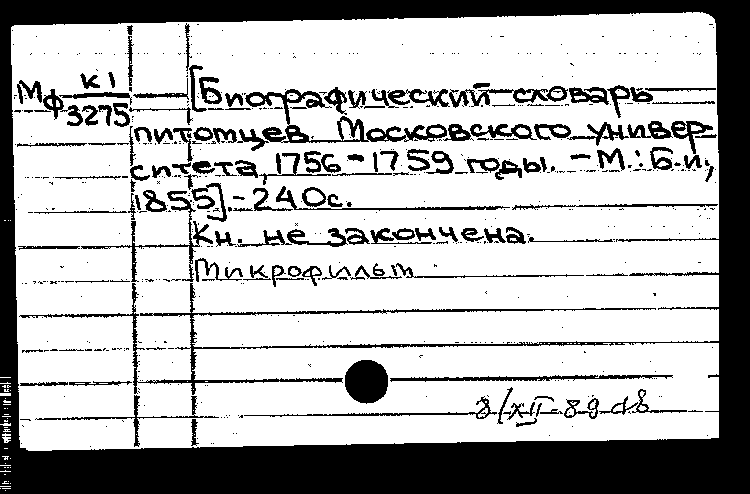 Мф К1/3275
[Биографический словарь
питомцев Московского универ-
ситета, 1756-1759 годы. - М.: Б.и.,
1855] - 240с.
Кн. не закончена.
Микрофильм
8/XII-89